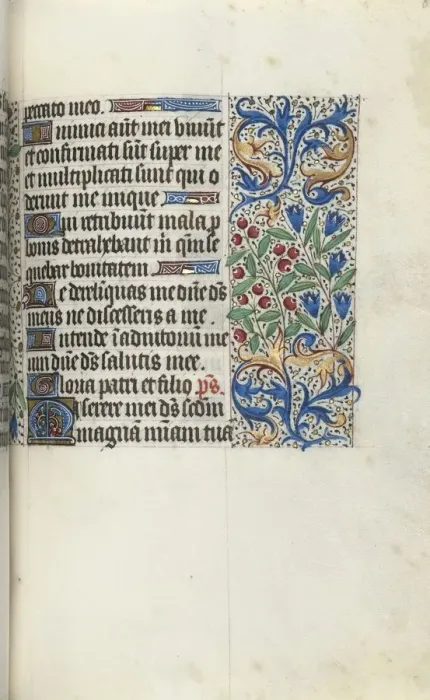 peccato meo.
Inimici aut mei vivut
et confirmati sut super me
et multiplicati sunt qui o
derunt me inique
Qui retribuut mala p
bonis detrahebant m qm se
quebar bonitatem
Ne derelinquas me dne ds
meus ne discesseris a me.
Intende i adiutoriu me
um dne ds salutis mee.
Gloria patri et filio ps.
Miserere mei ds scdm
magna miam tua